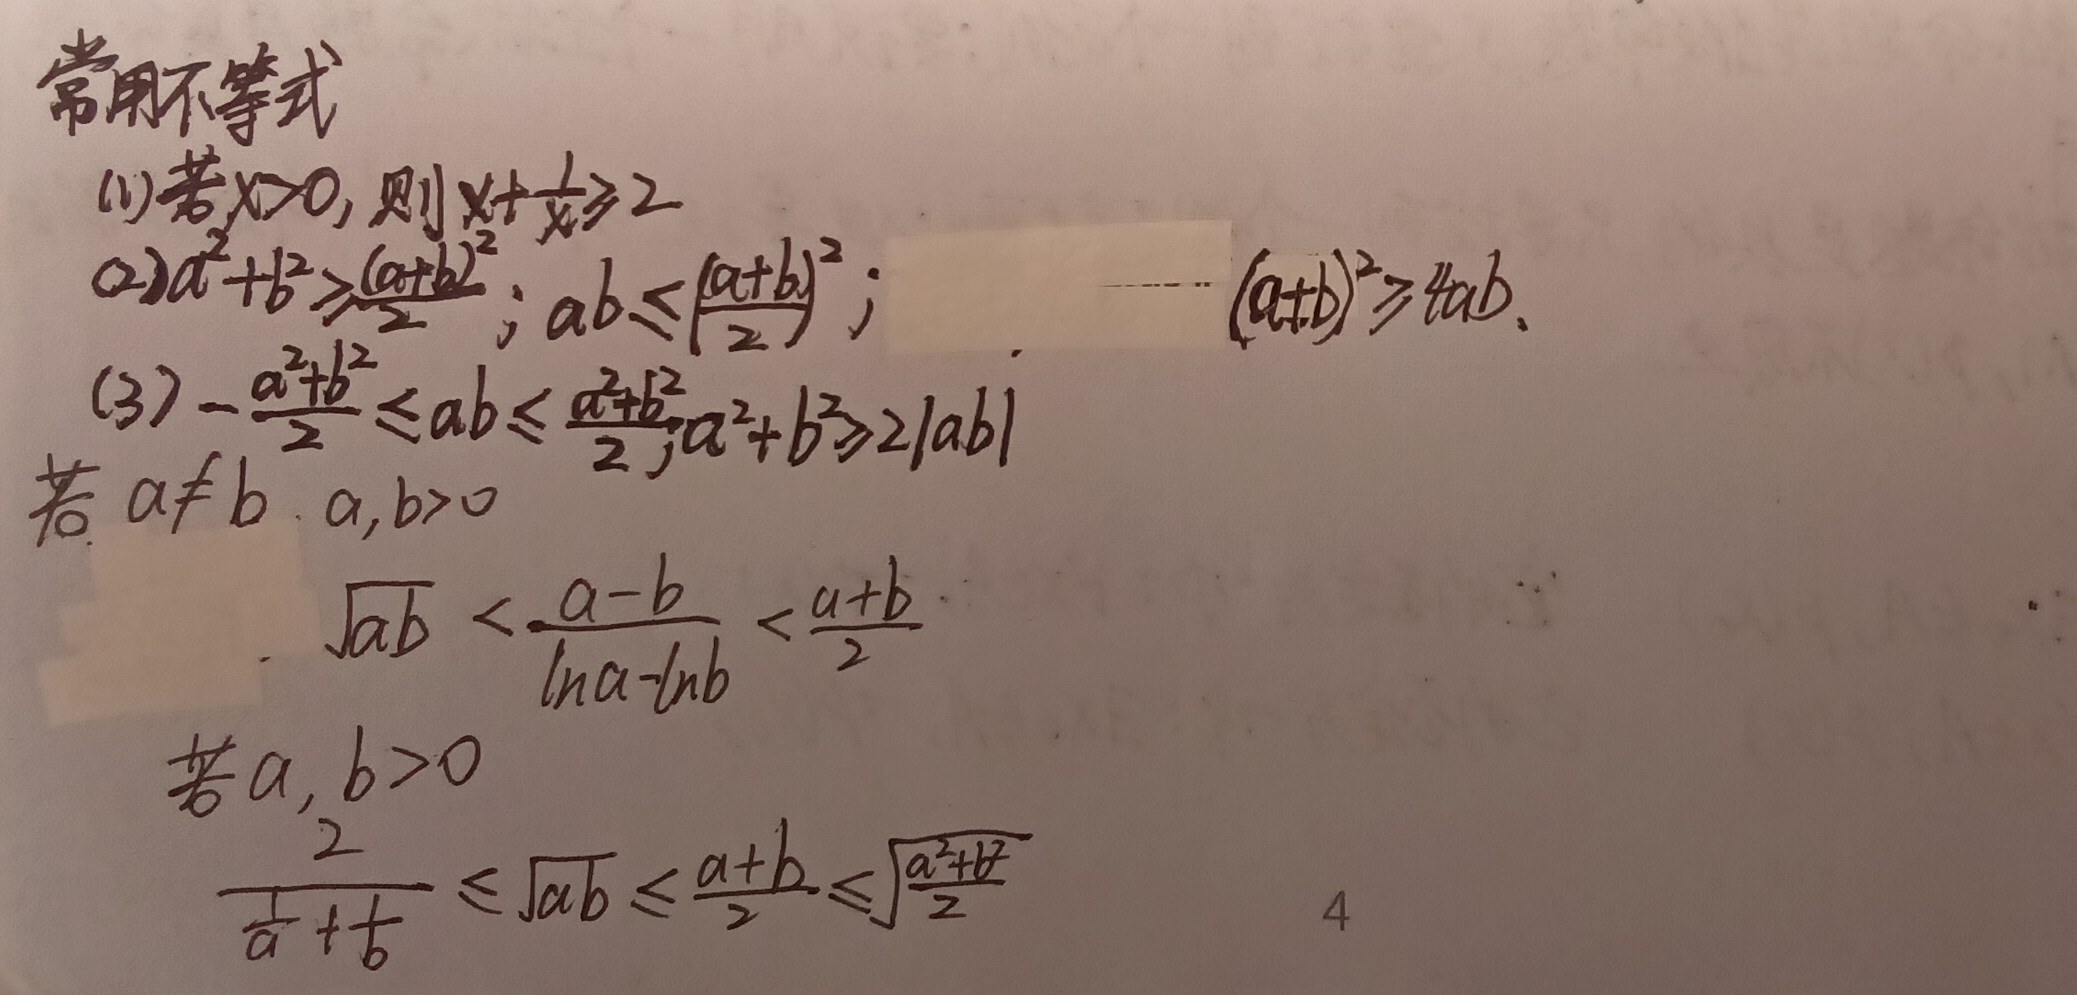 常用不等式
(1)若x>0,则x+1/x≥2
(2)a²+b²≥(a+b)²/2;ab≤((a+b)/2)²;(a+b)²≥4ab、
(3)-(a²+b²)/2≤ab≤(a²+b²)/2;a²+b²≥2|ab|
若a≠b.a,b>0
√ab<(a-b)/(lna-lnb)<(a+b)/2
若a,b>0
2/(1/a+1/b)≤√ab≤(a+b)/2≤√((a²+b²)/2)
4